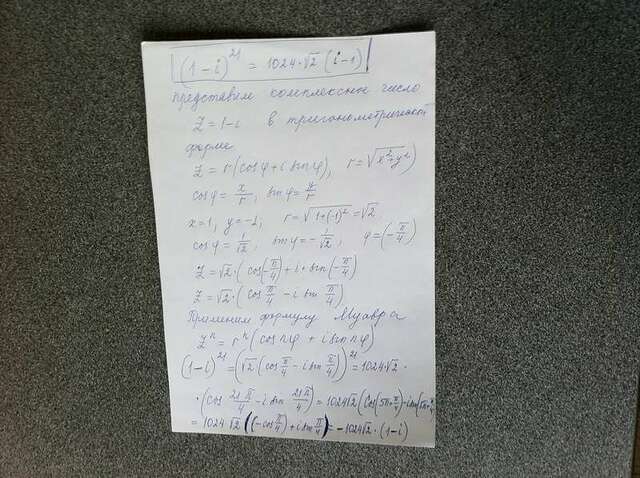 (1-i)²¹ = 1024·√2 (i-1)
представим комплексное число
Z = 1-i в тригонометрической
форме
Z = r(cosφ + i sinφ), r = √(x²+y²)
cosφ = x/r, sinφ = y/r
x=1, y=-1, r = √(1+(-1)²) = √2
cosφ = 1/√2, sinφ = -1/√2, φ = (-π/4)
Z = √2·(cos(-π/4) + i·sin(-π/4)
Z = √2·(cos π/4 - i sin π/4)
Применим формулу Муавра
Zⁿ = rⁿ(cos nφ + i sin nφ)
(1-i)²¹ = (√2(cos π/4 - i sin π/4))²¹ = 1024·√2·
·(cos 21π/4 - i sin 21π/4) = 1024√2(cos(5π+π/4) - i sin(5π+π/4
= 1024√2((-cos π/4) + i sin π/4) = -1024√2·(1-i)